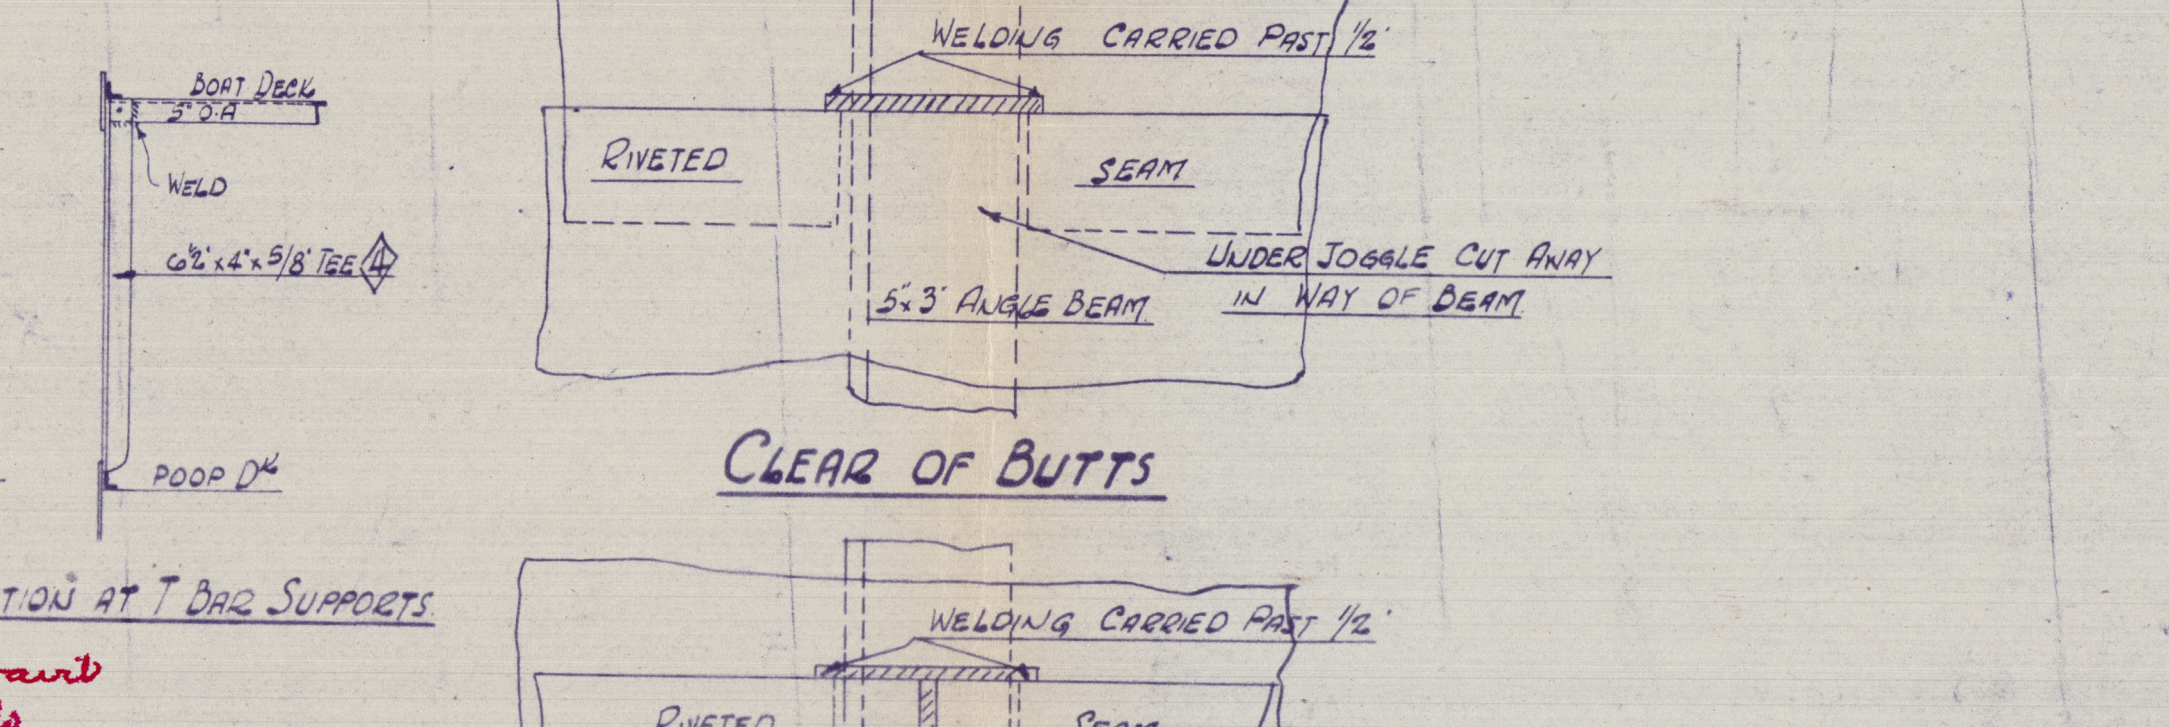 BOAT DECK
5" O.A
WELD
6½" x 4" x 5/8" TEE 4
POOP Dᴷ
TION AT T BAR SUPPORTS.
WELDING CARRIED PAST 1/2"
RIVETED
SEAM
UNDER JOGGLE CUT AWAY
IN WAY OF BEAM
5" x 3" ANGLE BEAM
CLEAR OF BUTTS
WELDING CARRIED PAST 1/2"
RIVETED
SEAM